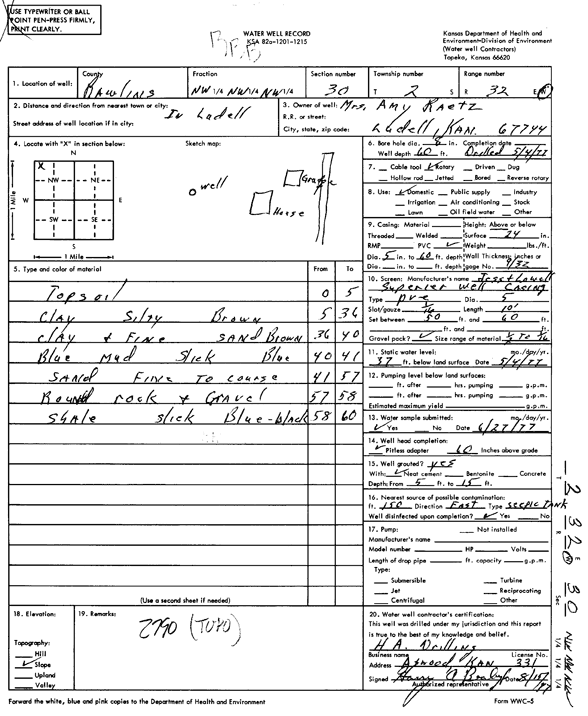 USE TYPEWRITER OR BALL
POINT PEN-PRESS FIRMLY,
PRINT CLEARLY.
WATER WELL RECORD
KSA 82a-1201-1215
Kansas Department of Health and
Environment-Division of Environment
(Water well Contractors)
Topeka, Kansas 66620
1. Location of well: County Rawlins Fraction NW 1/4 NW 1/4 NW 1/4 Section number 30 Township number T 2 S Range number R 32 E/W
2. Distance and direction from nearest town or city: In Ludell
Street address of well location if in city:
3. Owner of well: Mrs. Amy Raetz
R.R. or street:
City, state, zip code: Ludell, Kan. 67744
4. Locate with "X" in section below: Sketch map:
N
X
NW NE
W E
SW SE
S
1 Mile
1 Mile
well
Garage
House
5. Type and color of material From To
Topsoil 0 5
Clay Silty Brown 5 36
Clay & Fine Sand Brown 36 40
Blue Mud Slick Blue 40 41
Sand Fine To course 41 57
Round rock & Gravel 57 58
Shale slick Blue-black 58 60
(Use a second sheet if needed)
6. Bore hole dia. in. Completion date
Well depth 60 ft. Drilled 5/4/77
7. Cable tool ✓ Rotary Driven Dug
Hollow rod Jetted Bored Reverse rotary
8. Use: ✓ Domestic Public supply Industry
Irrigation Air conditioning Stock
Lawn Oil field water Other
9. Casing: Material Height: Above or below
Threaded Welded Surface 24 in.
RMP PVC ✓ Weight lbs./ft.
Dia. 5 in. to 60 ft. depth Wall Thickness: inches or
Dia. in. to ft. depth gage No. 9/32
10. Screen: Manufacturer's name Jess Lowell
Superier Well Casing
Type pvc Dia. 5
Slot/gauze 1/16 Length 10'
Set between 50 ft. and 60 ft.
ft. and ft.
Gravel pack? ✓ Size range of material
11. Static water level: mo./day/yr.
37 ft. below land surface Date 5/4/77
12. Pumping level below land surfaces:
ft. after hrs. pumping g.p.m.
ft. after hrs. pumping g.p.m.
Estimated maximum yield g.p.m.
13. Water sample submitted: mo./day/yr.
✓ Yes No Date 6/27/77
14. Well head completion:
✓ Pitless adapter 60 Inches above grade
15. Well grouted? yes
With: ✓ Neat cement Bentonite Concrete
Depth: From 5 ft. to 15 ft.
16. Nearest source of possible contamination:
ft. 150 Direction East Type Secpic Tank
Well disinfected upon completion? ✓ Yes No
17. Pump: Not installed
Manufacturer's name
Model number HP Volts
Length of drop pipe ft. capacity g.p.m.
Type:
Submersible Turbine
Jet Reciprocating
Centrifugal Other
18. Elevation:
Topography:
Hill
✓ Slope
Upland
Valley
19. Remarks:
2790 (TOPO)
20. Water well contractor's certification:
This well was drilled under my jurisdiction and this report
is true to the best of my knowledge and belief.
H.A. Drilling
Business name License No.
Address Atwood, Kan. 331
Signed Date 8/15/77
Authorized representative
Forward the white, blue and pink copies to the Department of Health and Environment
Form WWC-5
T 2 R 32 E W Sec 30 NW NW NW 1/4 1/4 1/4